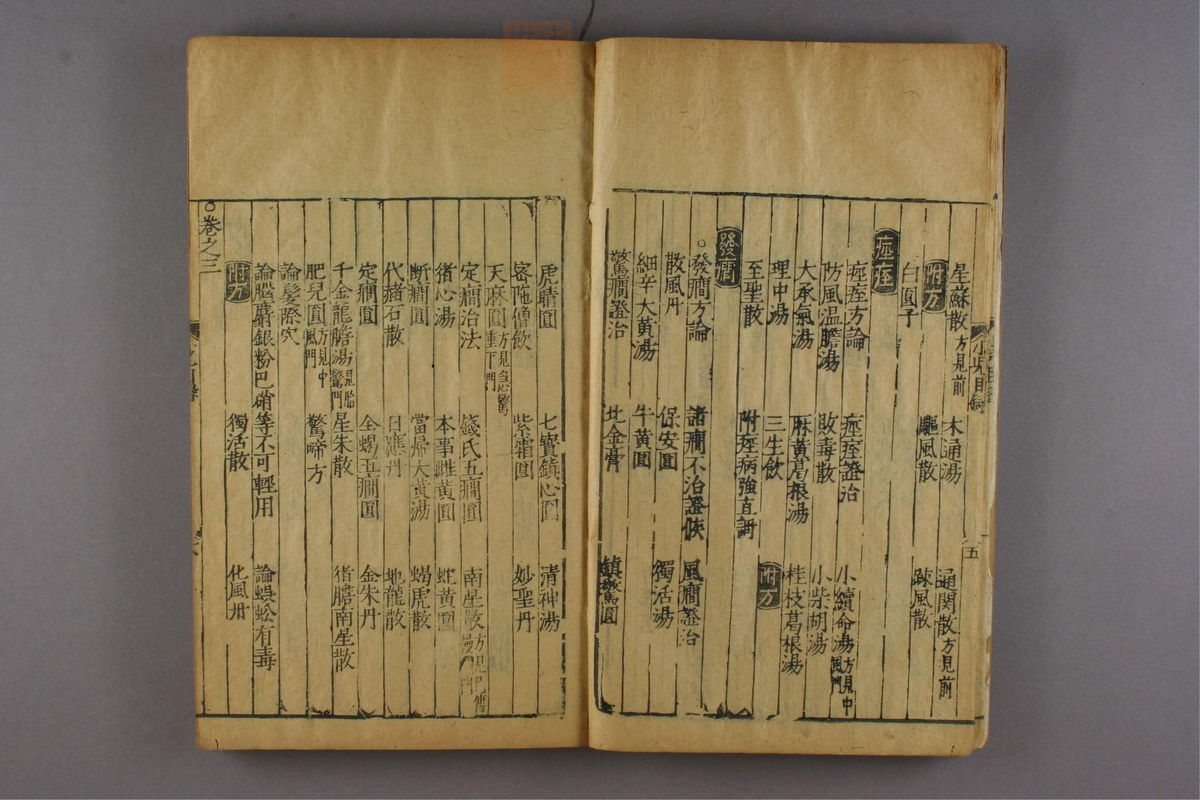 星蘇散方見前 木通湯 通関散方見前
附方 驅風散 踈風散
白圓子
痓痉
痓痉方論 痓痉證治 小續命湯方見中風門
防風温膽湯 敗毒散 小柴胡湯
大承氣湯 麻黃葛根湯 桂枝葛根湯
理中湯 三生飲 附方
至聖散 附痓病強直
發癇
○發癇方論 諸癇不治證候 風癇證治
散風丹 保安圓 獨活湯
細辛大黃湯 牛黃圓
驚癇證治 比金膏 鎮驚圓
五
虎睛圓 七寶鎮心圓 清神湯
密陀僧飲 紫霜圓 妙聖丹
天麻圓方見急驚重下門
定癇治法 錢氏五癇圓 南星散
猪心湯 本事雌黃圓 蛇黃圓
斷癇圓 當帰大黃湯 蝎虎散
代赭石散 日應丹 地龍散
定癇圓 全蝎五癇圓 金朱丹
千金龍膽湯 星朱散 猪膽南星散
肥兒圓方見中風門 驚啼方
論髪際穴
論腦麝銀粉巴硝等不可輕用 論蜈蚣有毒
附方 獨活散 化風丹
○卷之三